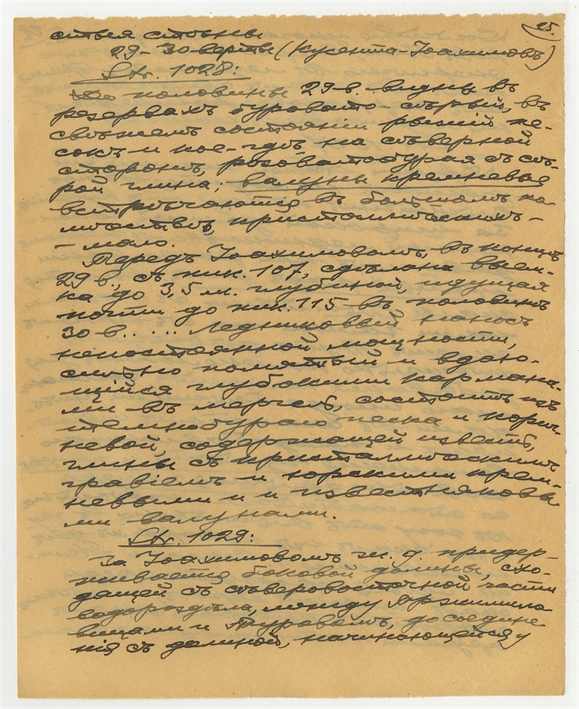 25.
29–30 версты (Кусента–Іоахимовъ)
Str. 1028:
До половины 29 в. видны въ
резервахъ буровато-сѣрый, въ
свѣжемъ состояніи рыжій пе-
сокъ и кое-гдѣ на сѣверной
сторонѣ, розоватобурая съ сѣ-
рой глина; валуны кремневые
встрѣчающіе въ большомъ ко-
личествѣ, кристаллическихъ –
– мало.
Передъ Іоахимовомъ, въ концѣ
29 в., съ пик. 107, сдѣлана выем-
ка до 3,5 м. глубиной, идущая
почти до пик. 115 въ половинѣ
30 в. ... Ледниковый наносъ
непостоянной мощности,
сильно помятый и вдаю-
щійся глубокими кармана-
ми въ мергель, состоитъ изъ
темнобураго песка и корич-
невой, содержащей известь,
глины съ кристаллическимъ
гравіемъ и юрскими крем-
невыми и и известняковы-
ми валунами.
Str. 1029:
За Іоахимовомъ ж. д. придер-
живается боковой долины, схо-
дящей съ сѣверовосточной части
водораздѣла, между
вицами и Журавомъ, до соедине-
нія съ долиной, начинающейся у